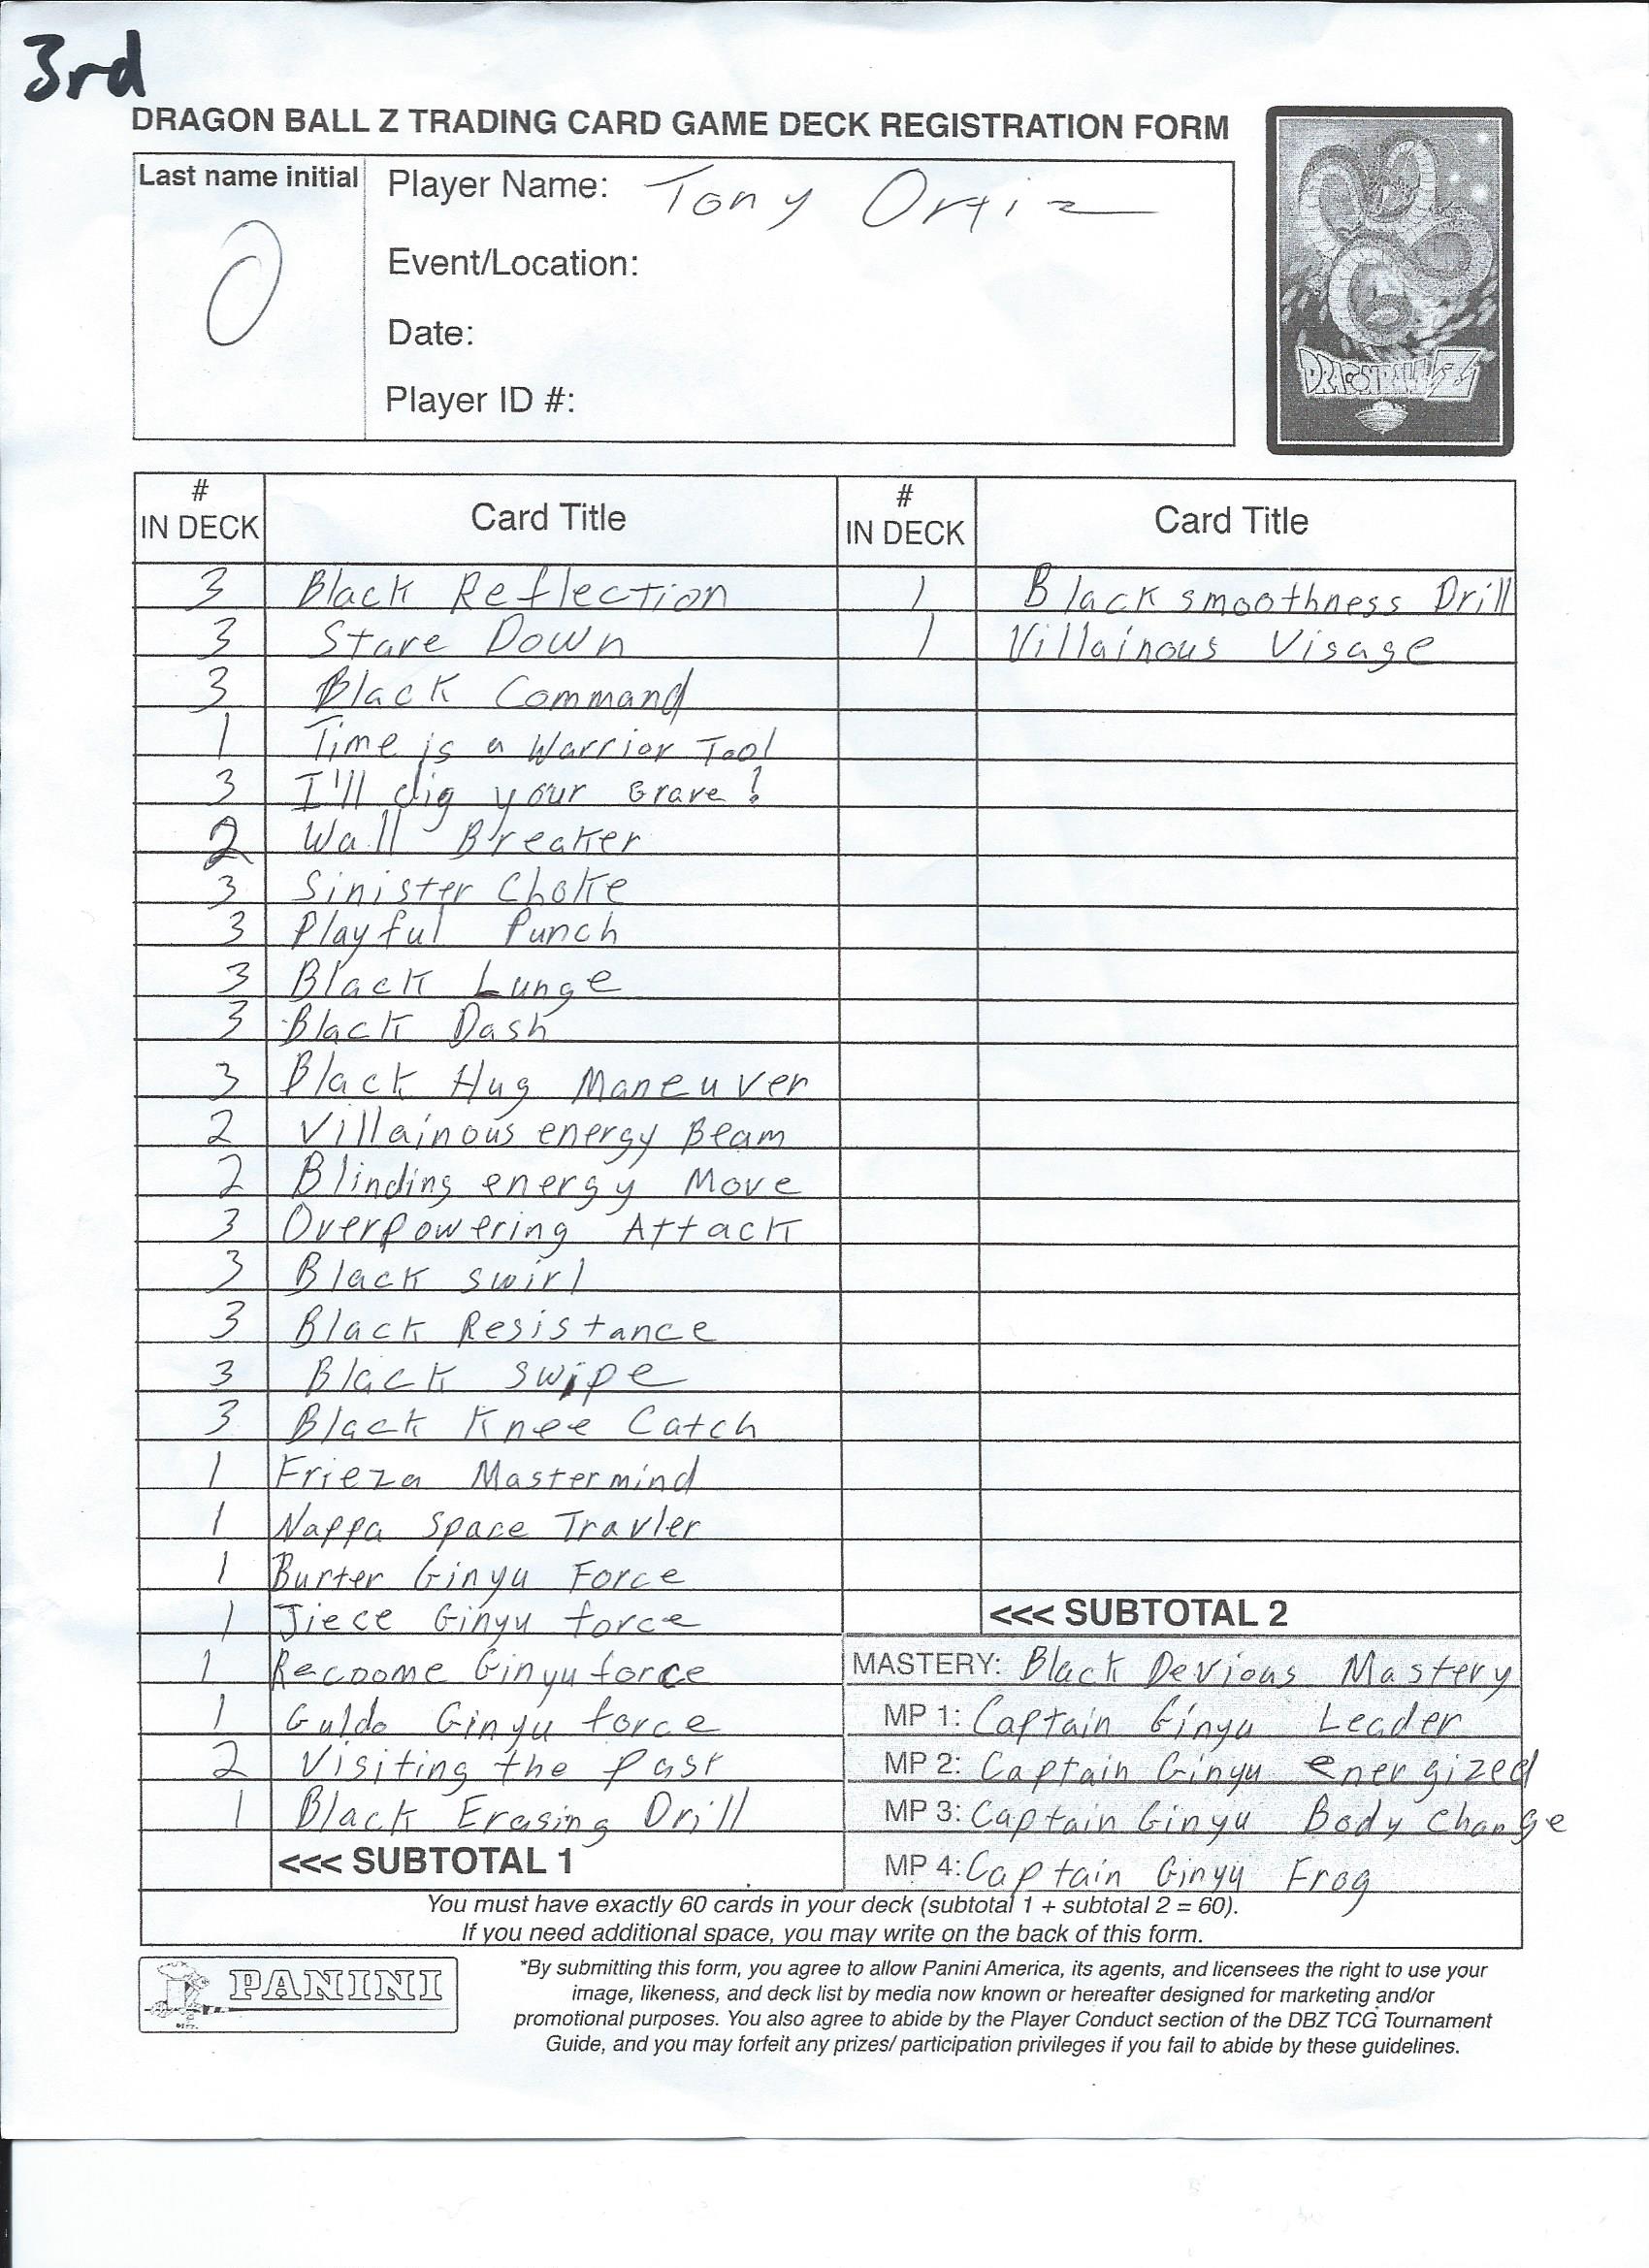 3rd
DRAGON BALL Z TRADING CARD GAME DECK REGISTRATION FORM
Last name initial
O
Player Name: Tony Ortiz
Event/Location:
Date:
Player ID #:
DRAGONBALL Z
# IN DECK Card Title # IN DECK Card Title
3 Black Reflection 1 Black smoothness Drill
3 Stare Down 1 Villainous Visage
3 Black Command
1 Time is a Warrior Tool
3 I'll dig your Grave!
2 Wall Breaker
3 Sinister Choke
3 Playful Punch
3 Black Lunge
3 Black Dash
3 Black Hug Maneuver
2 Villainous energy Beam
2 Blinding energy Move
3 Overpowering Attack
3 Black swirl
3 Black Resistance
3 Black swipe
3 Black Knee Catch
1 Frieza Mastermind
1 Nappa Space Travler
1 Burter Ginyu Force
1 Jiece Ginyu force <<< SUBTOTAL 2
1 Recoome Ginyu force MASTERY: Black Devious Mastery
1 Guldo Ginyu force MP 1: Captain Ginyu Leader
2 Visiting the Past MP 2: Captain Ginyu energized
1 Black Erasing Drill MP 3: Captain Ginyu Body Change
<<< SUBTOTAL 1 MP 4: Captain Ginyu Frog
You must have exactly 60 cards in your deck (subtotal 1 + subtotal 2 = 60).
If you need additional space, you may write on the back of this form.
PANINI
*By submitting this form, you agree to allow Panini America, its agents, and licensees the right to use your
image, likeness, and deck list by media now known or hereafter designed for marketing and/or
promotional purposes. You also agree to abide by the Player Conduct section of the DBZ TCG Tournament
Guide, and you may forfeit any prizes/ participation privileges if you fail to abide by these guidelines.